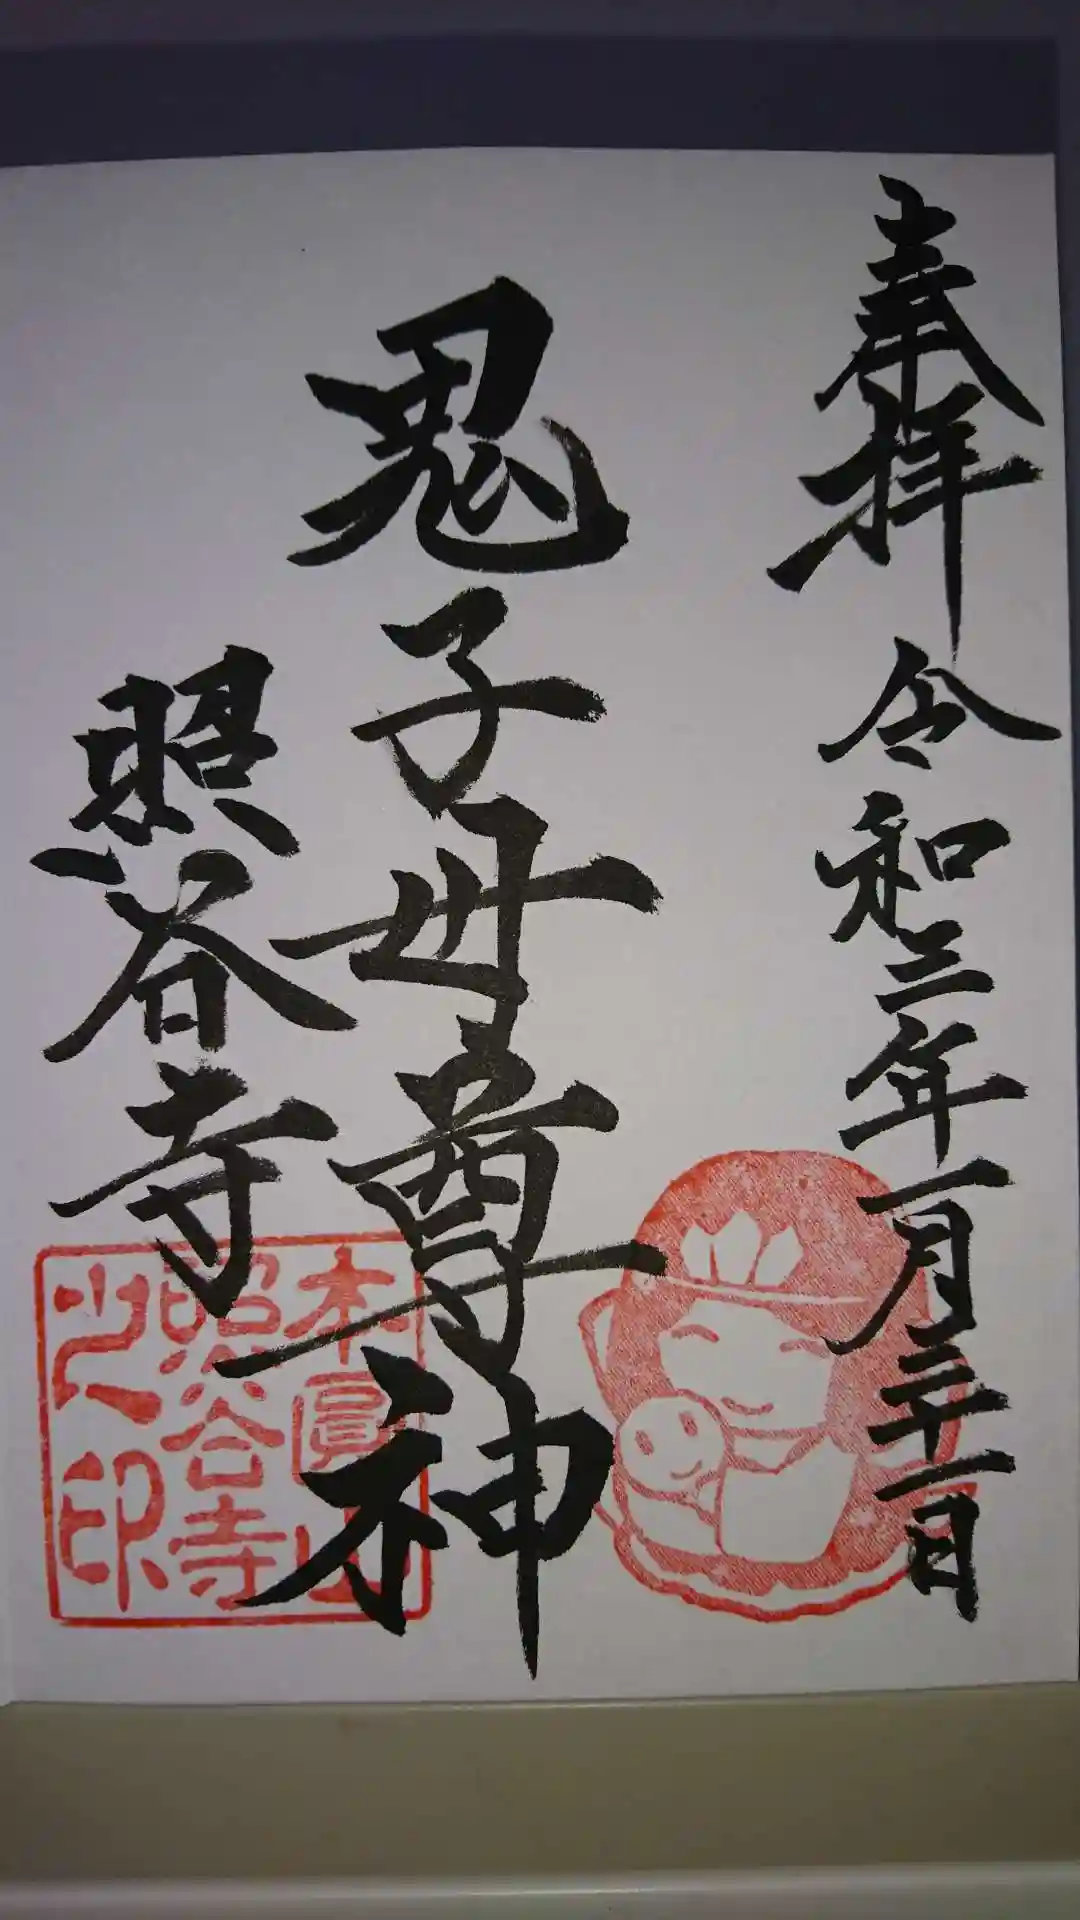 奉拝 令和三年一月三十一日
鬼子母尊神
照谷寺
本圓山
照谷寺
之印